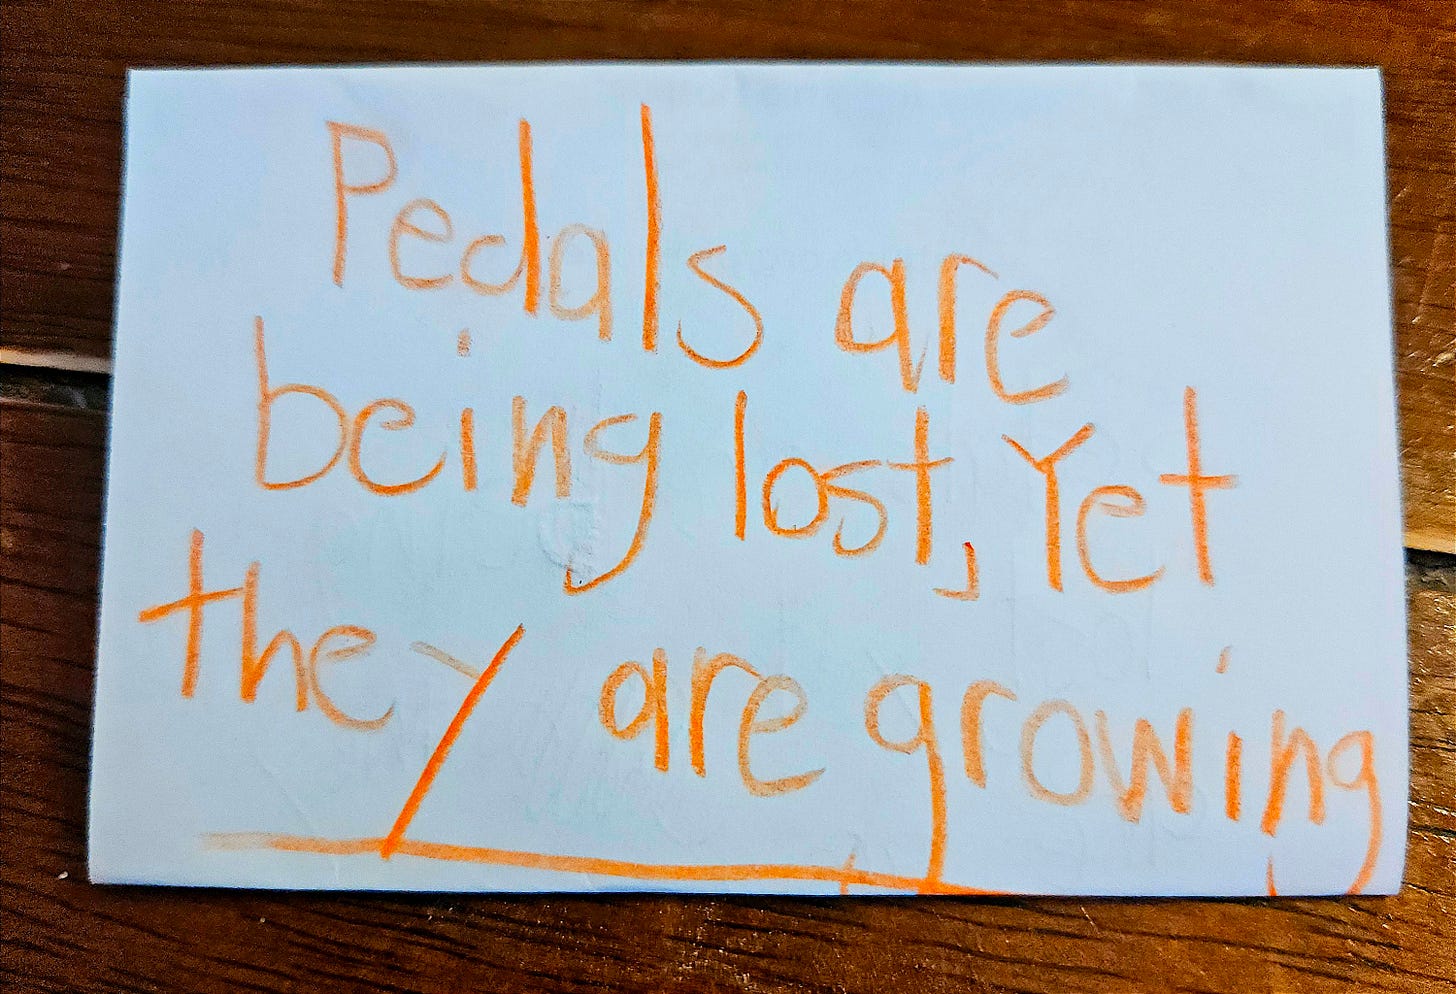 Pedals are
being lost, Yet
they are growing